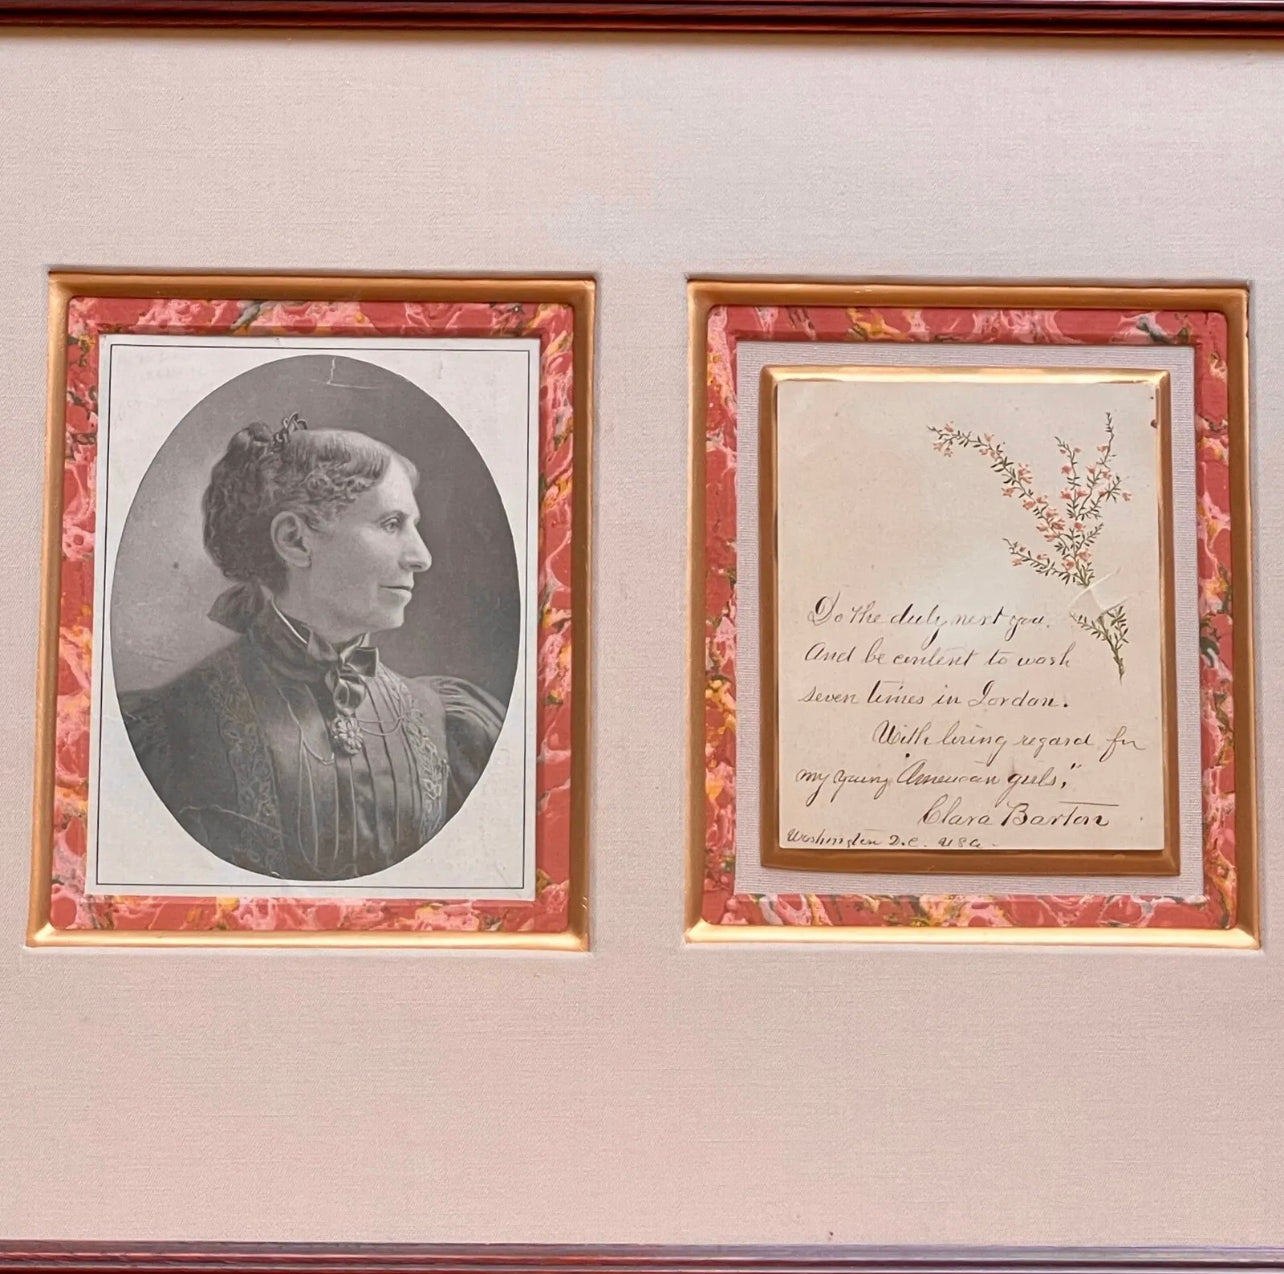 Do the duty next you.
And be content to wash
seven times in Jordan.
With loving regard for
my young American girls,"
Clara Barton
Washington D.C. USA.